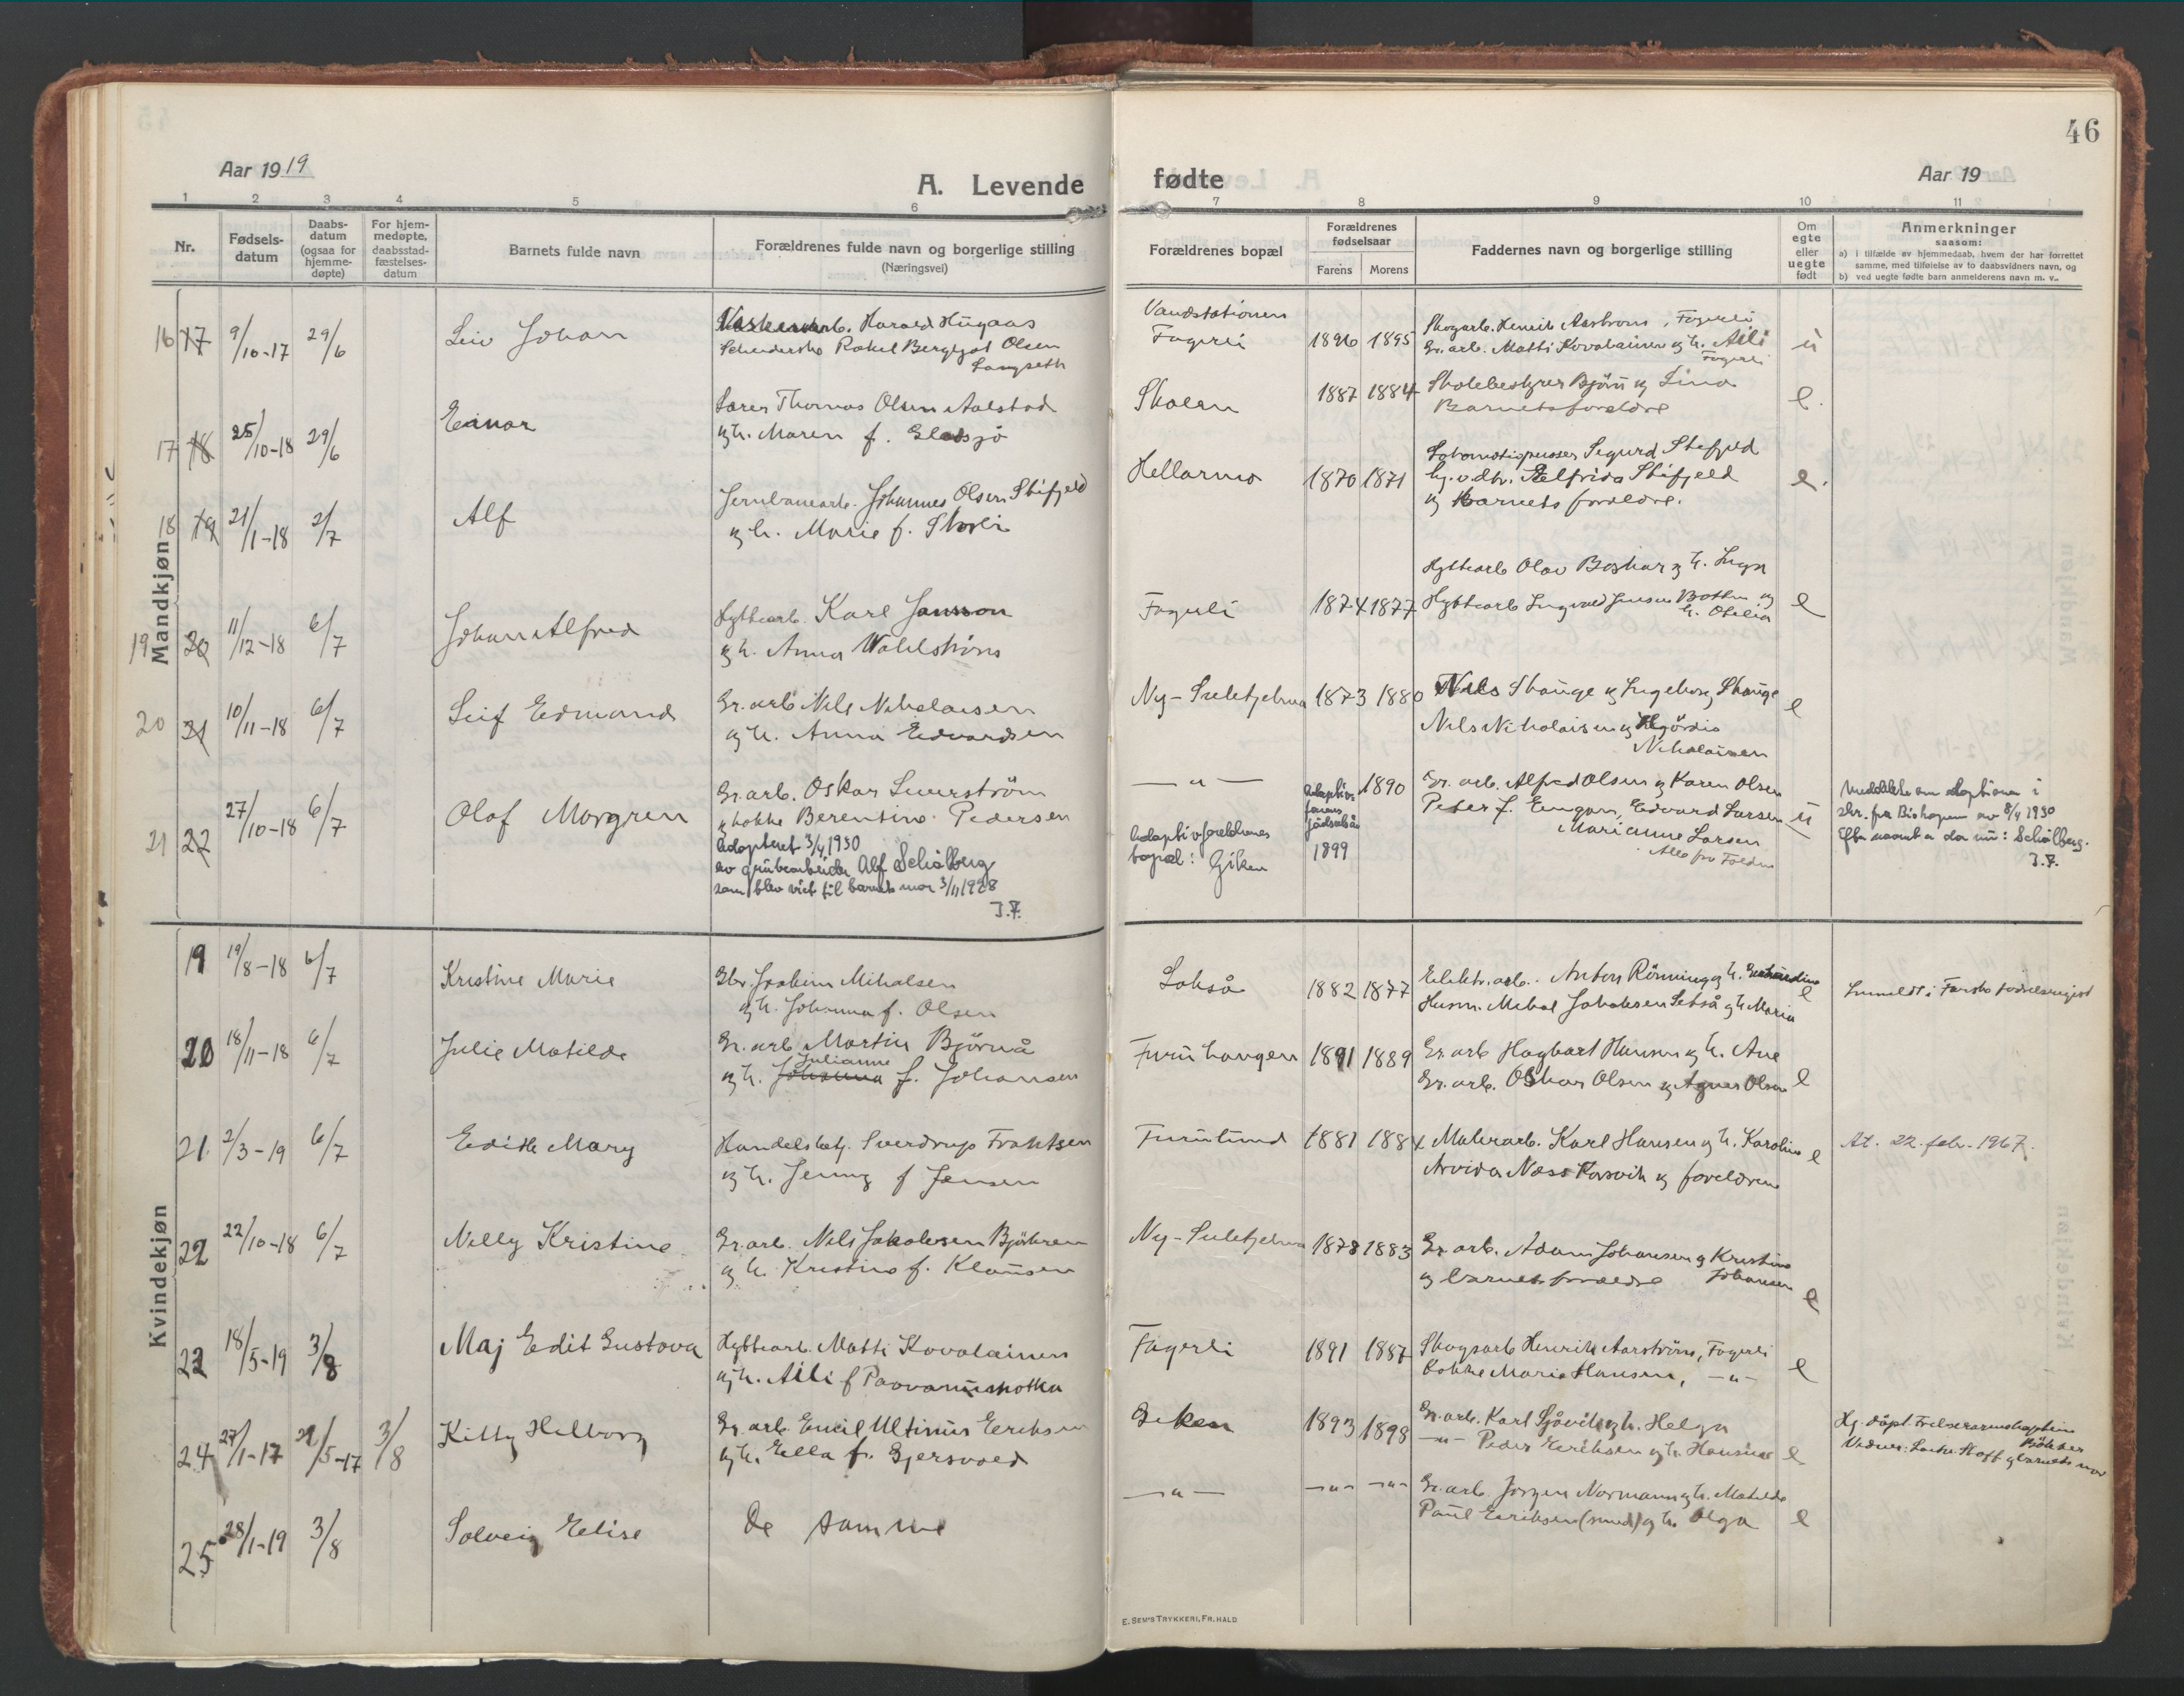 46
Aar 1919
A. Levende
fødte
Aar 19
1 2 3 4 5 6 7 8 9 10 11
Nr.
Fødsels-
datum
Daabs-
datum
(ogsaa for
hjemme-
døpte)
For hjem-
medøpte,
daabsstad-
fæstelses-
datum
Barnets fulde navn
Forældrenes fulde navn og borgerlige stilling
(Næringsvei)
Forældrenes bopæl
Forældrenes
fødselsaar
Farens Morens
Faddernes navn og borgerlige stilling
Om
egte
eller
uegte
født
Anmerkninger
saasom:
a) i tilfælde av hjemmedaab, hvem der har forrettet
samme, med tilføielse av to daabsvidners navn, og
b) ved uegte fødte barn anmelderens navn m. v..
Mandkjøn
16 17 9/10-17 29/6
Leiv Johan
Harald Hugaas
Rakel Bergljot Olsen
Langseth
Vandstationen
Fagerli
1896 1895
Skogarb. Henrik Aastrom, Fagerli
Gr. arb. Matti Kovalainen og h. Aili
Fagerli
u
17 18 25/10-18 29/6
Einar
Lærer Thomas Olsen Aalstad
og h. Maren f. Gladsjø
Skolen
1887 1884
Skolebestyrer Bjørn og Lina
Barnets foreldre
e.
18 19 21/1-18 2/7
Alf
Jernbanearb. Johannes Olsen Skifjeld
og h. Marie f. Skorli
Hellarmo
1870 1871
Sigurd Skifjeld
Elfrida Skifjeld
og barnets foreldre.
e.
19 20 11/12-18 6/7
Johan Alfred
Hyttearb. Karl Jansson
og h. Anna Wahlström
Fagerli
1874 1877
Hyttearb Olav Boskar og h. Inga
Hyttearb Ingvald Jensen Botten og
h. Otelia
e
20 21 10/11-18 6/7
Leif Edmand
Gr. arb Nils Nikolaisen
og h. Anna Edvardsen
Ny-Sulitjelma
1873 1880
Nils Skauge og Ingeborg Skauge
Nils Nikolaisen og Hjördis
Nikolaisen
e
21 22 27/10-18 6/7
Olaf Margren
Gr. arb. Oskar Suverström
og kokke Berentine Pedersen
Adopteret 3/4 1930
av grubearbeider Alf Schålberg
som blev viet til barnets mor 3/11 1928
J.F.
— " —
Adoptivforeldrenes
bopæl: Giken
Adoptiv-
farens
födselsår
1899
1890
Gr. arb. Alfred Olsen og Karen Olsen
Peter J. Engan, Edvard Larsen
Marianne Larsen
Alle fra Folden
u
Meddelelse om adoptionen i
skr. fra Biskopen av 8/4 1930
Efternavnet er da nu: Schålberg.
J.F.
Kvindekjøn
19 19/8-18 6/7
Kristine Marie
Gbr. Joakim Mikalsen
og h. Johanna f. Olsen
Lakså
1882 1877
Elektr. arb. Anton Rönning og h.
Husm. Mikal Jakobsen Setså og h. Maria
e
Innmeldt i Fauske fodselsregist
20 18/11-18 6/7
Julie Matilde
Gr. arb Martin Björnå
Julianne
og h. Johanna f. Johansen
Furuhaugen
1891 1889
Gr. arb Hagbart Hansen og h. Ane
Gr. arb. Oskar Olsen og Agnes Olsen
e
21. 2/3-19 6/7
Edith Mary
Handelsbetj. Sverdrup Frantsen
og h. Jenny f Jensen
Furulund
1881 1884
Malerarb. Karl Hansen og h. Karoline
Arvida Næss Korsvik og foreldrene
e
At. 22. febr. 1967.
22 22/10-18 6/7
Nelly Kristine
Gr. arb. Nils Jakobsen Björkren
og h. Kristine f. Klausen
Ny-Sulitjelma
1878 1883
Gr. arb. Adam Johansen og Kristine
Johansen
og barnets foreldre
e
22 18/5-19 3/8
Maj Edit Gustava
Hyttearb. Matti Kovalainen
og h. Aili f
Fagerli
1891 1887
Skogsarb Henrik Aarström, Fagerli
Kokke Marie Hansen, — " —
e
24 27/1-17 29/5-17 3/8
Kitty Helborg
Gr. arb. Emil Ultinus Eeriksen
og h. Ella f. Gjersvold
Giken
1893 1898
Gr. arb. Karl Sjåvik og h. Helga
— " — Peder Eriksen og h. Hansine
e
Hj. döpt. Frelsesarmekaptein
Bökker
Vidner: Hoff og barnets mor
25 28/1-19 3/8
Solveig Elise
De samme
— " —
— " — — " —
Gr. arb. Jørgen Normann og h. Matilde
Paul Eeriksen (smed) og h. Olga
e
E. SEM'S TRYKKERI, FR.HALD